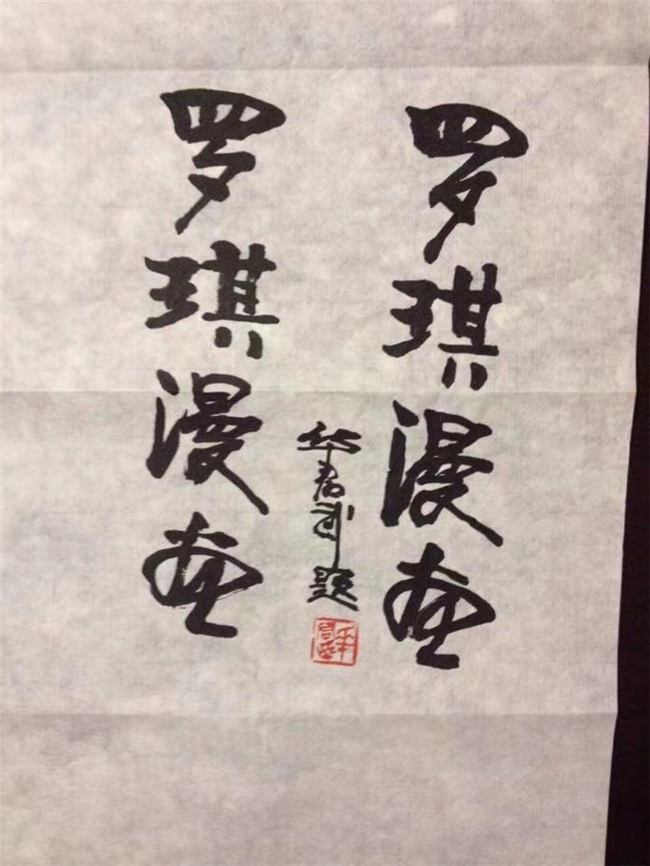 罗琪漫画
华君武题
罗琪漫画